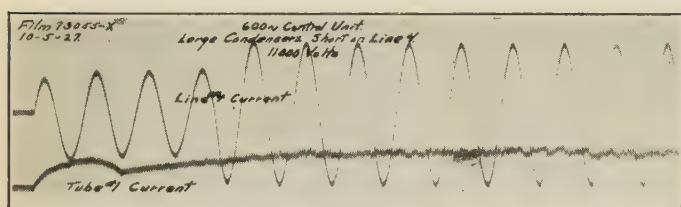 Film 73055-X
10-5-27
600~ Control Unit.
Large Condensers, Short on Line 4
11000 Volts
Line #4 Current
Tube #1 Current